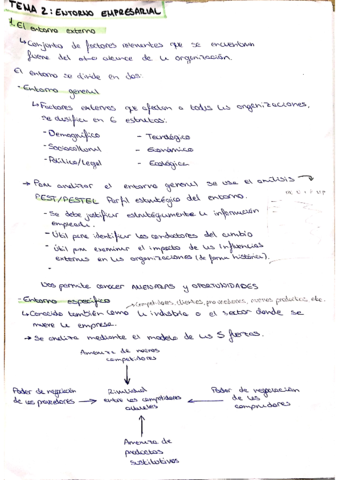 TEMA 2: ENTORNO EMPRESARIAL
1. El entorno externo
↳ Conjunto de factores relevantes que se encuentran
fuera del alcance de la organización.
El entorno se divide en dos:
- Entorno general
↳ Factores externos que afectan a todas las organizaciones.
Se clasifica en 6 estratos:
- Demográfico - Tecnológico
- Sociocultural - Económico
- Político/Legal - Ecológico
→ Para analizar el entorno general se usa el análisis
PEST/PESTEL Perfil estratégico del entorno.
- Se debe justificar estratégicamente la información
empleada.
- Útil para identificar los conductores del cambio
- Útil para examinar el impacto de las influencias
externas en las organizaciones (de forma histórica).
-
Nos permite conocer AMENAZAS y OPORTUNIDADES
- Entorno específico → Competidores, clientes, proveedores, nuevos productos, etc.
↳ Conocido también como la industria o el sector donde se
mueve la empresa.
→ Se analiza mediante el modelo de las 5 fuerzas.
Amenaza de nuevos
competidores
Poder de negociación
de los proveedores
Rivalidad
entre los competidores
actuales
Poder de negociación
de los compradores
Amenaza de
productos
sustitutivos